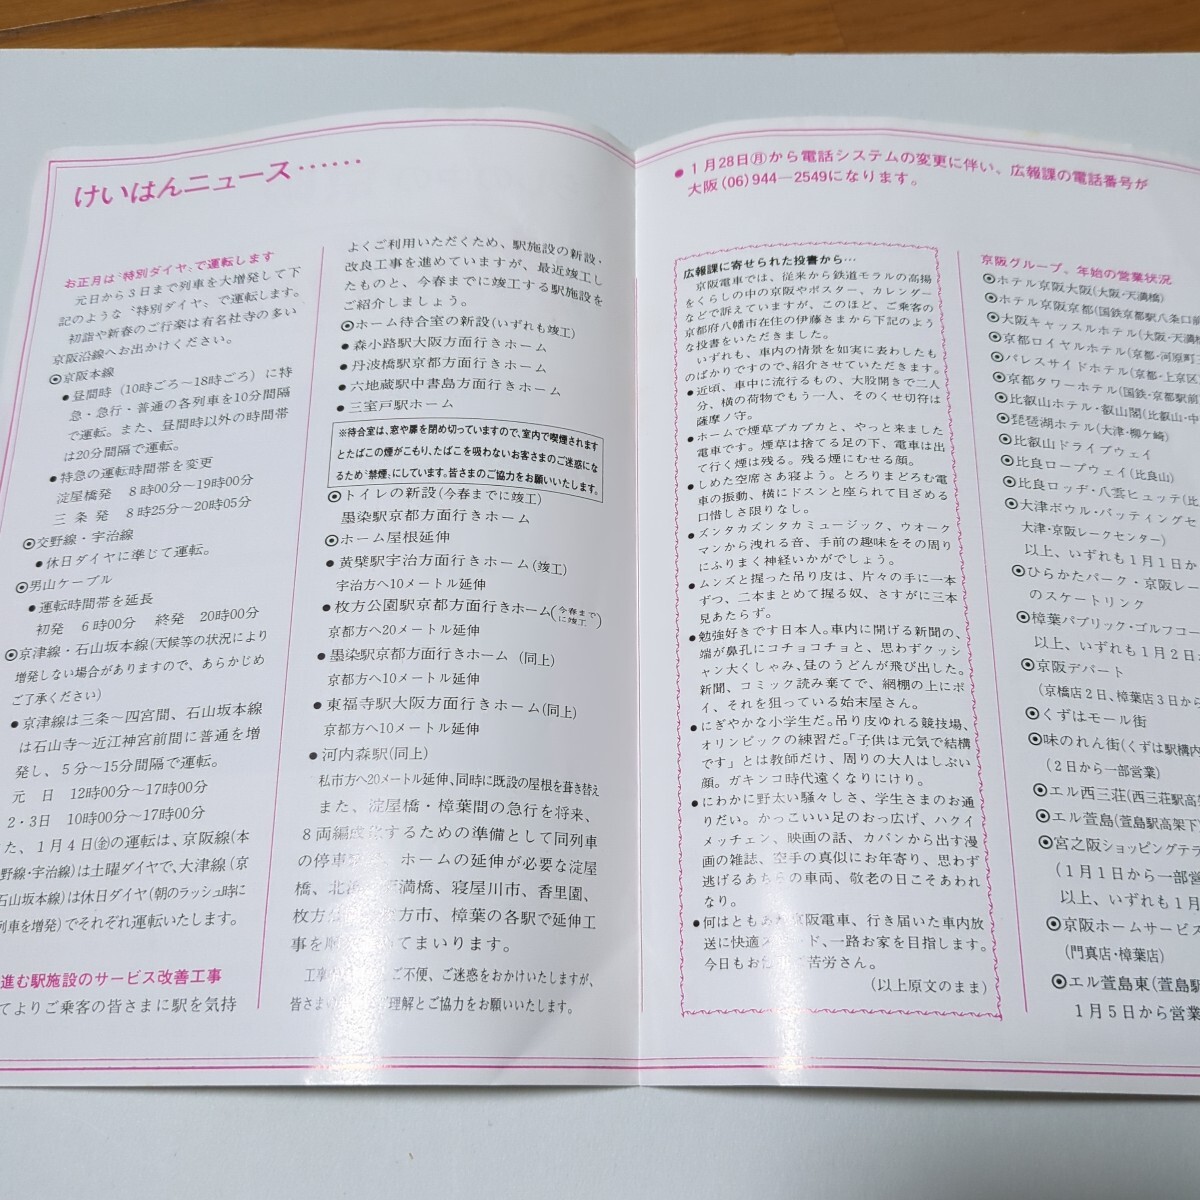 けいはんニュース……
お正月は〝特別ダイヤ〟で運転します
元日から3日まで列車を大増発して下
記のような〝特別ダイヤ〟で運転します。
初詣や新春のご行楽は有名社寺の多い
京阪沿線へお出かけください。
◉京阪本線
●昼間時(10時ごろ〜18時ごろ)に特
急・急行・普通の各列車を10分間隔
で運転。また、昼間時以外の時間帯
は20分間隔で運転。
●特急の運転時間帯を変更
淀屋橋発 8時00分〜19時00分
三条発 8時25分〜20時05分
◉交野線・宇治線
●休日ダイヤに準じて運転。
◉男山ケーブル
●運転時間帯を延長
初発 6時00分 終発 20時00分
◉京津線・石山坂本線(天候等の状況により
増発しない場合がありますので、あらかじめ
ご了承ください)
●京津線は三条〜四宮間、石山坂本線
は石山寺〜近江神宮前間に普通を増
発し、5分〜15分間隔で運転。
元日 12時00分〜17時00分
2・3日 10時00分〜17時00分
た、1月4日㈮の運転は、京阪線(本
野線・宇治線)は土曜ダイヤで、大津線(京
石山坂本線)は休日ダイヤ(朝のラッシュ時に
列車を増発)でそれぞれ運転いたします。
進む駅施設のサービス改善工事
てよりご乗客の皆さまに駅を気持
よくご利用いただくため、駅施設の新設・
改良工事を進めていますが、最近竣工し
たものと、今春までに竣工する駅施設を
ご紹介しましょう。
◉ホーム待合室の新設(いずれも竣工)
●森小路駅大阪方面行きホーム
●丹波橋駅京都方面行きホーム
●六地蔵駅中書島方面行きホーム
●三室戸駅ホーム
※待合室は、窓や扉を閉め切っていますので、室内で喫煙されます
とたばこの煙がこもり、たばこを吸わないお客さまのご迷惑にな
るため〝禁煙〟にしています。皆さまのご協力をお願いいたします。
◉トイレの新設(今春までに竣工)
墨染駅京都方面行きホーム
◉ホーム屋根延伸
●黄檗駅宇治方面行きホーム(竣工)
宇治方へ10メートル延伸
●枚方公園駅京都方面行きホーム(今春までに竣工)
京都方へ20メートル延伸
●墨染駅京都方面行きホーム(同上)
京都方へ10メートル延伸
●東福寺駅大阪方面行きホーム(同上)
京都方へ10メートル延伸
●河内森駅(同上)
私市方へ20メートル延伸、同時に既設の屋根を葺き替え
また、淀屋橋・樟葉間の急行を将来、
8両編成化するための準備として同列車
の停車 、ホームの延伸が必要な淀屋
橋、北浜、天満橋、寝屋川市、香里園、
枚方公園、枚方市、樟葉の各駅で延伸工
事を順 てまいります。
工事 ご不便、ご迷惑をおかけいたしますが、
皆さま ご理解とご協力をお願いいたします。
●1月28日㈪から電話システムの変更に伴い、広報課の電話番号が
大阪(06)944—2549になります。
広報課に寄せられた投書から…
京阪電車では、従来から鉄道モラルの高揚
をくらしの中の京阪やポスター、カレンダー
などで訴えていますが、このほど、ご乗客の
京都府八幡市在住の伊藤さまから下記のよう
な投書をいただきました。
いずれも、車内の情景を如実に表わしたも
のばかりですので、紹介させていただきます。
●近頃、車中に流行るもの、大股開きで二人
分、横の荷物でもう一人、そのくせ切符は
薩摩ノ守。
●ホームで煙草プカプカと、やっと来ました
電車です。煙草は捨てる足の下、電車は出
て行く煙は残る。残る煙にむせる顔。
●しめた空席さあ寝よう。とろりまどろむ電
車の振動、横にドスンと座られて目ざめる
口惜しさ限りなし。
●ズンタカズンタカミュージック、ウオーク
マンから洩れる音、手前の趣味をその周り
にふりまく神経いかがでしょう。
●ムンズと握った吊り皮は、片々の手に一本
ずつ、二本まとめて握る奴、さすがに三本
見あたらず。
●勉強好きです日本人。車内に開げる新聞の、
端が鼻孔にコチョコチョと、思わずクッシ
ャン大くしゃみ、昼のうどんが飛び出した。
新聞、コミック読み棄てで、網棚の上にポ
イ、それを狙っている始末屋さん。
●にぎやかな小学生だ。吊り皮ゆれる競技場、
オリンピックの練習だ。「子供は元気で結構
です」とは教師だけ、周りの大人はしぶい
顔。ガキンコ時代遠くなりにけり。
●にわかに野太い騒々しさ、学生さまのお通
りだい。かっこいい足のおっ広げ、ハクイ
メッチェン、映画の話、カバンから出す漫
画の雑誌、空手の真似にお年寄り、思わず
逃げるあちらの車両、敬老の日こそあわれ
なり。
●何はともあれ京阪電車、行き届いた車内放
送に快適スピード、一路お家を目指します。
今日もお仕事ご苦労さん。
(以上原文のまま)
京阪グループ、年始の営業状況
◉ホテル京阪大阪(大阪・天満橋)
◉ホテル京阪京都(国鉄京都駅八条口前
◉大阪キャッスルホテル(大阪・天満橋
◉京都ロイヤルホテル(京都・河原町三
◉パレスサイドホテル(京都・上京区)
◉京都タワーホテル(国鉄・京都駅前
◉比叡山ホテル・叡山閣(比叡山・中
◉琵琶湖ホテル(大津・柳ヶ崎)
◉比叡山ドライブウェイ
◉比良ロープウェイ(比良山)
◉比良ロッヂ・八雲ヒュッテ(比
◉大津ボウル・バッティングセ
大津・京阪レークセンター)
以上、いずれも1月1日か
◉ひらかたパーク・京阪レー
のスケートリンク
◉樟葉パブリック・ゴルフコー
以上、いずれも1月2日か
◉京阪デパート
(京橋店2日、樟葉店3日から
◉くずはモール街
◉味のれん街(くずは駅構内
(2日から一部営業)
◉エル西三荘(西三荘駅高
◉エル萱島(萱島駅高架下)
◉宮之阪ショッピングテラ
(1月1日から一部営
以上、いずれも1月
◉京阪ホームサービス
(門真店・樟葉店)
◉エル萱島東(萱島駅
1月5日から営業